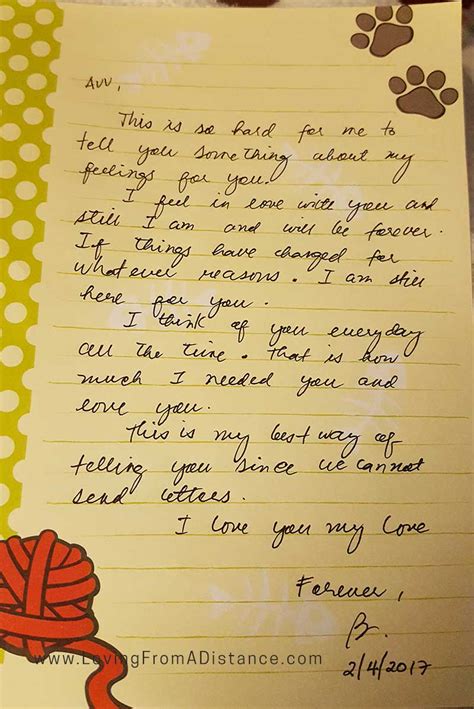 Avv,
This is so hard for me to
tell you something about my
feelings for you.
I feel in love with you and
still I am and will be forever.
If things have changed for
whatever reasons. I am still
here for you.
I think of you everyday
all the time. That is how
much I needed you and
love you.
This is my best way of
telling you since we cannot
send letters.
I love you my love
Forever,
B.
www.LovingFromADistance.com
2/4/2017